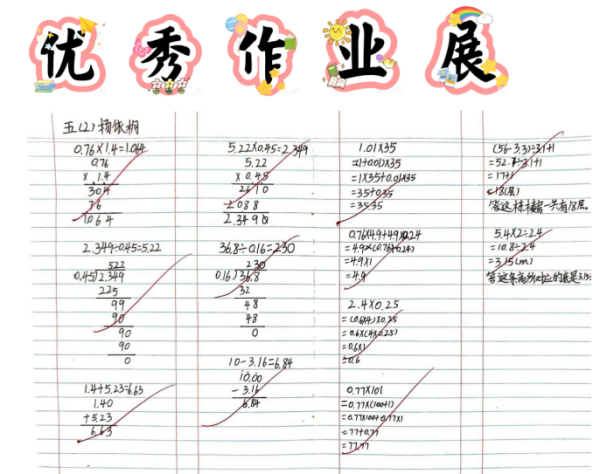 优秀作业展
五(2) 杨依桐
0.76×1.4=1.064
0.76
× 1.4
304
76
1.064
2.349÷0.45=5.22
522
0.45)2.349
225
99
90
90
90
0
1.4+5.23=6.63
1.40
+5.23
6.63
5.22×0.45=2.349
5.22
× 0.45
2610
2088
2.3490
36.8÷0.16=230
230
0.16)36.8
32
48
48
0
10-3.16=6.84
10.00
-3.16
6.84
1.01×35
=(1+0.01)×35
=1×35+0.01×35
=35+0.35
=35.35
0.76×4.9+4.9×0.24
=4.9×(0.76+0.24)
=4.9×1
=4.9
2.4×0.25
=(0.6×4)×0.25
=0.6×(4×0.25)
=0.6×1
=0.6
0.77×101
=0.77×(100+1)
=0.77×100+0.77×1
=77+0.77
=77.77
(56-3.3)÷3.1+1
=52.7÷3.1+1
=17+1
=18(层)
答:这栋楼一共有18层。
5.4×2÷2.4
=10.8÷2.4
(m)
答:这条高所对应的底是